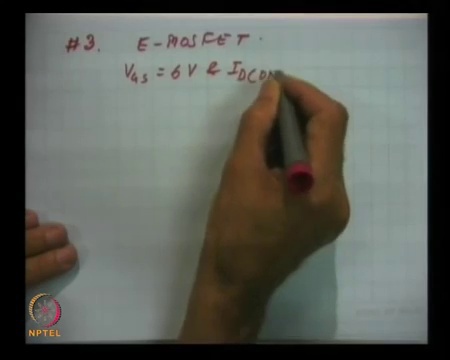 #3. E-MOSFET.
V_GS = 6 V & I_D(ON
NPTEL